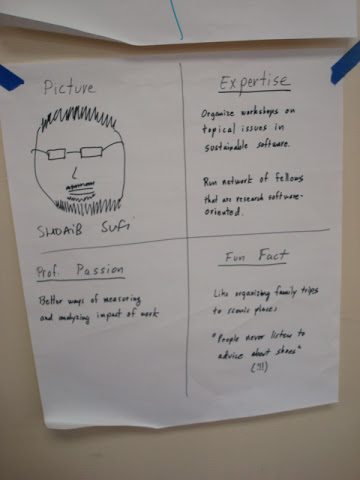 Picture
SHOAIB Sufi
Expertise
Organize workshops on
topical issues in
sustainable software.
Run network of fellows
that are research software-
oriented.
Prof. Passion
Better ways of measuring
and analyzing impact of work
Fun Fact
Like organizing family trips
to scenic places
"People never listen to
advice about shoes"
(!!!)